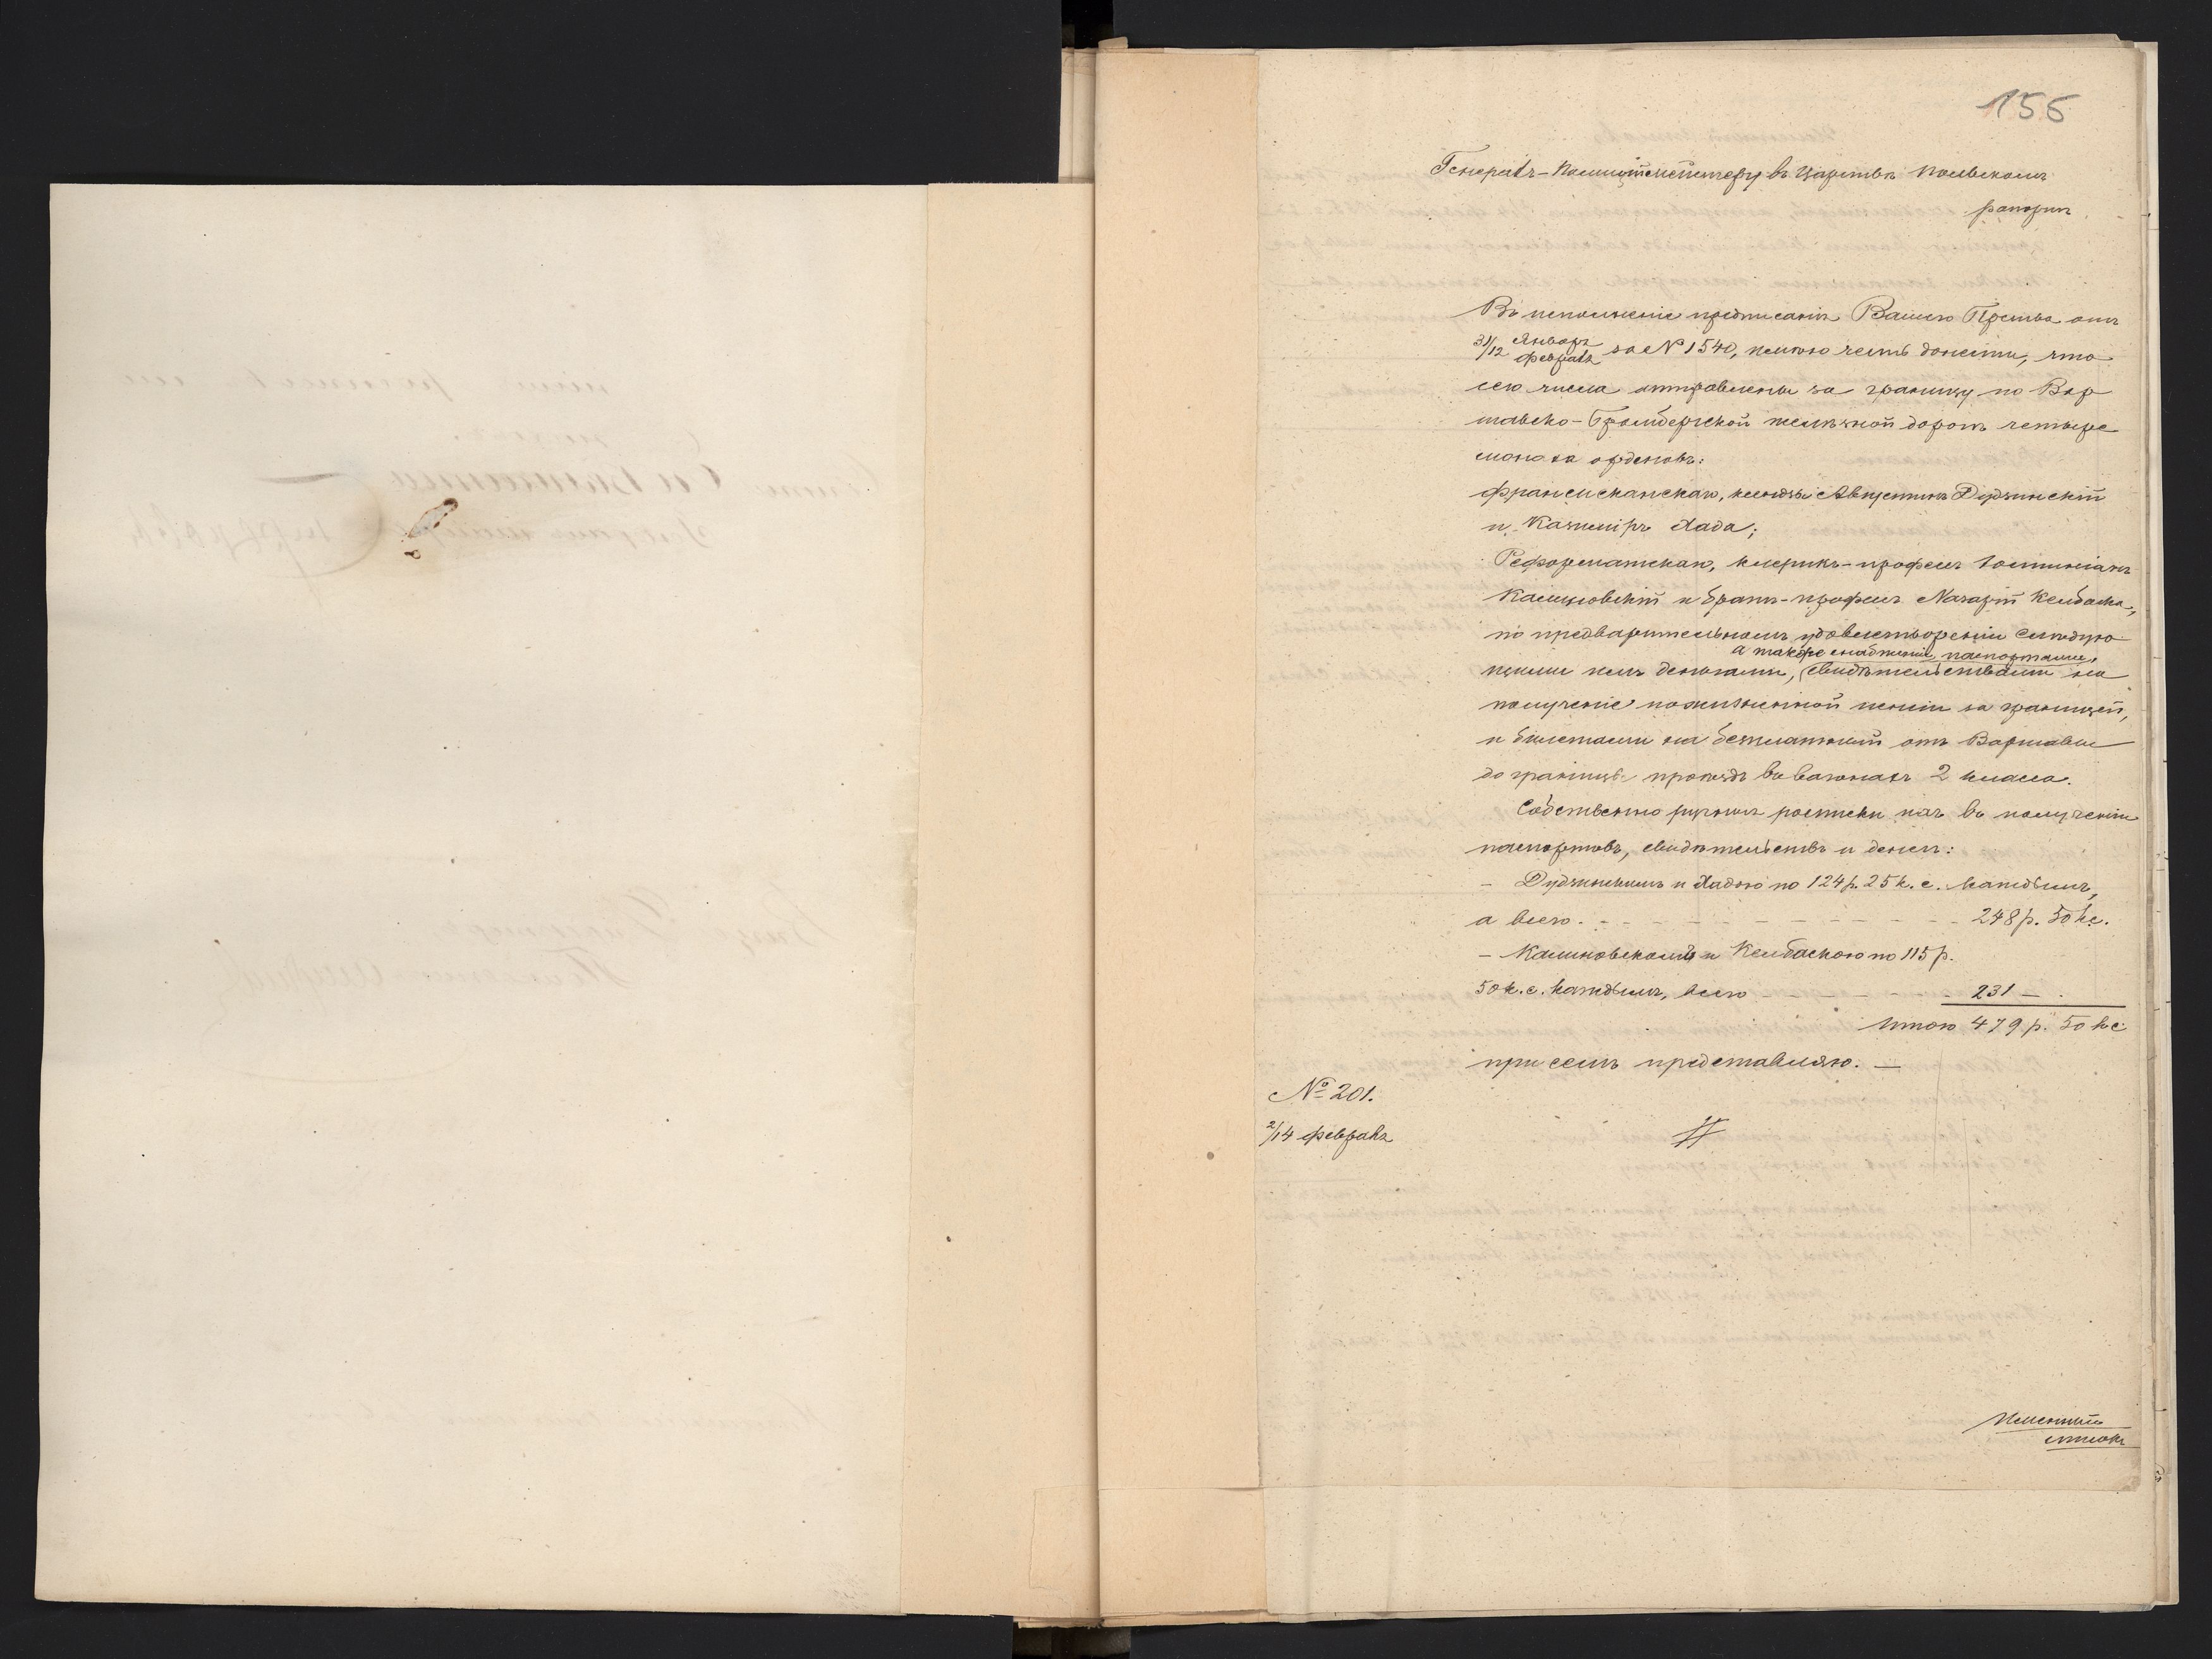 155
Генералъ-Полицiймейстеру въ Царствѣ Польскомъ
рапортъ
Въ исполненіе предписанія Вашего Прства отъ
31/12 Января/Февраля за № 1540, имѣю честь донести, что
сего числа отправлены за границу по Вар
шавско-Бромбергской желѣзной дорогѣ четыре
монаха орденовъ:
францисканскаго, ксендзы Августинъ Дудзинскій
и Казиміръ Лада;
Реформатскаго, клерикъ-професъ
Калиновскій и братъ-професъ Назарій Келбаса,
по предварительномъ удовлетвореніи слѣдую
а также снабженіи паспортами,
щими имъ деньгами, свидѣтельствами на
полученіе пожизненной пенсіи за границей,
и билетами на безплатный отъ Варшавы
до границы проѣздъ въ вагонахъ 2 класса.
Собственно ручныя росписки ихъ въ полученіи
паспортовъ, свидѣтельствъ и денегъ:
- Дудзинскимъ и Ладою по 124 р. 25 к. с. каждымъ,
а всего - - - - - - - - - - - - 248 р. 50 к с.
- Калиновскимъ и Келбасою по 115 р.
50 к. с. каждымъ, всего - - - - - - - 231 -
Итого 479 р. 50 к с
при семъ представляю. —
№ 201.
2/14 Февраля
Именный
списокъ